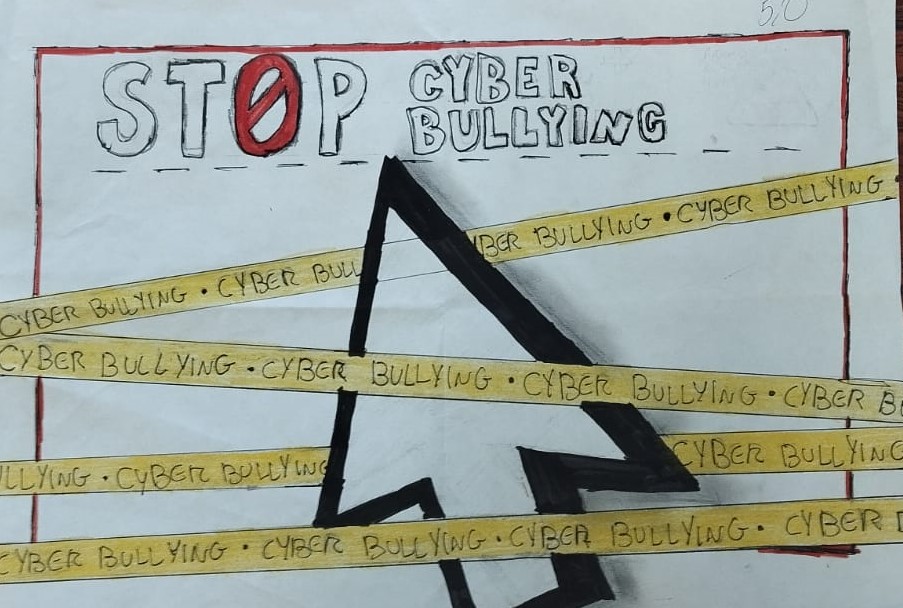 5,0
STOP CYBER
BULLYING
CYBER BULLYING • CYBER BULL
BER BULLYING • CYBER BULLYING
CYBER BULLYING • CYBER BULLYING • CYBER BULLYING • CYBER B
LLYING • CYBER BULLYING
CYBER BULLYING
CYBER BULLYING • CYBER BULLYING • CYBER BULLYING • CYBER